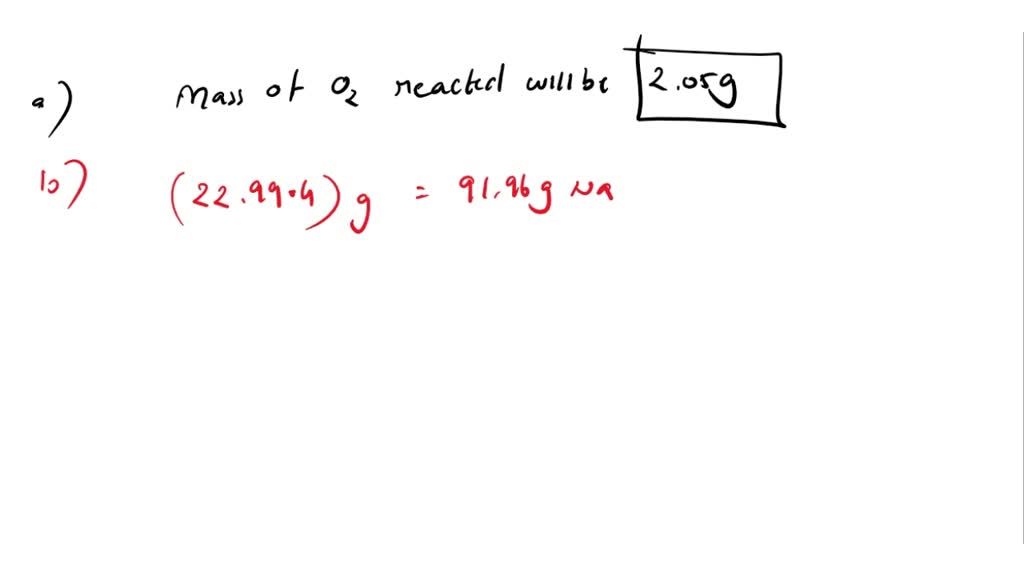 a) Mass of O2 reacted will be 2.05g
b) (22.99.4) g = 91.96g Na